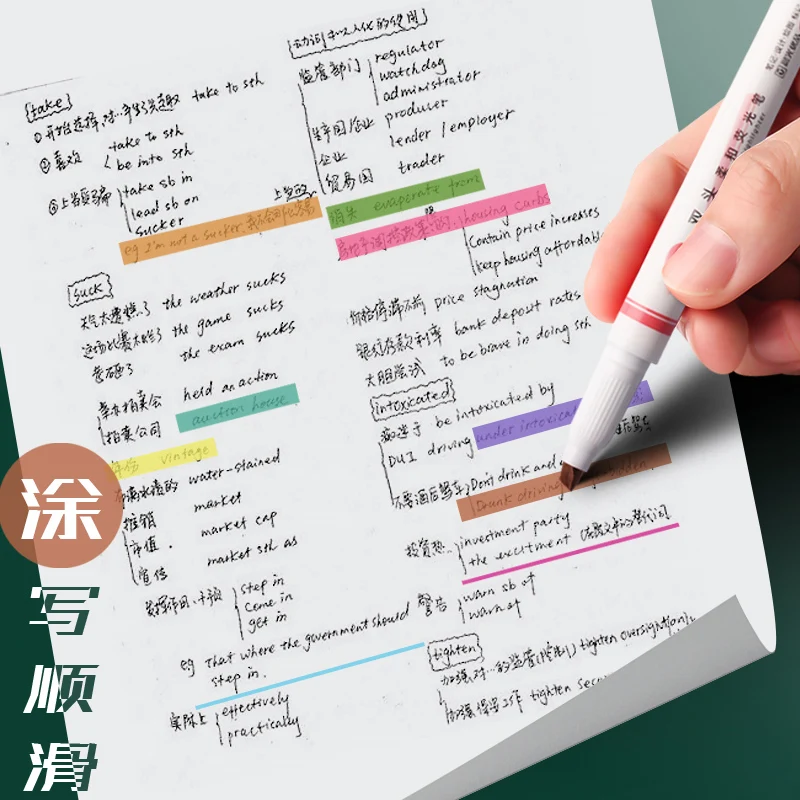 take
①开始选择,对…产生了兴趣 take to sth
②喜欢
take to sth
be into sth
③上当受骗
take sb in
lead sb on
sucker
eg I'm not a sucker,
suck
天气太糟糕了 the weather sucks
这场比赛太烂了 the game sucks
考砸了 the exam sucks
举办拍卖会 held an action
拍卖公司 auction house
年份 vintage
有滴水渍的 water-stained
推销 market
市值. market cap
宣传 market sth as
发挥作用、干预
step in
come in
get in
eg That where the government should
step in.
实际上
effectively
practically
动词和人化的使用
监管部门
regulator
watchdog
administrator
生产国/企业 producer
企业 lender / employer
贸易国 trader
上当的
消失 evaporate from
房地产调控政策的 housing curbs
Contain price increases
keep housing affordabl
价格停滞不前 price stagnation
银行存款利率 bank deposit rates
大胆尝试 to be brave in doing sth
intoxicated
痴迷于 be intoxicated by
DUI driving under intoxica
不要酒后驾车
Don't drink and
Drunk driving
投资热..
investment party
the excitment
警告
warn sb of
warn of
tighten
加强对…的监管(控制) tighten oversight
加强保安工作 tighten secu
双头柔和荧光笔
涂
写
顺
滑